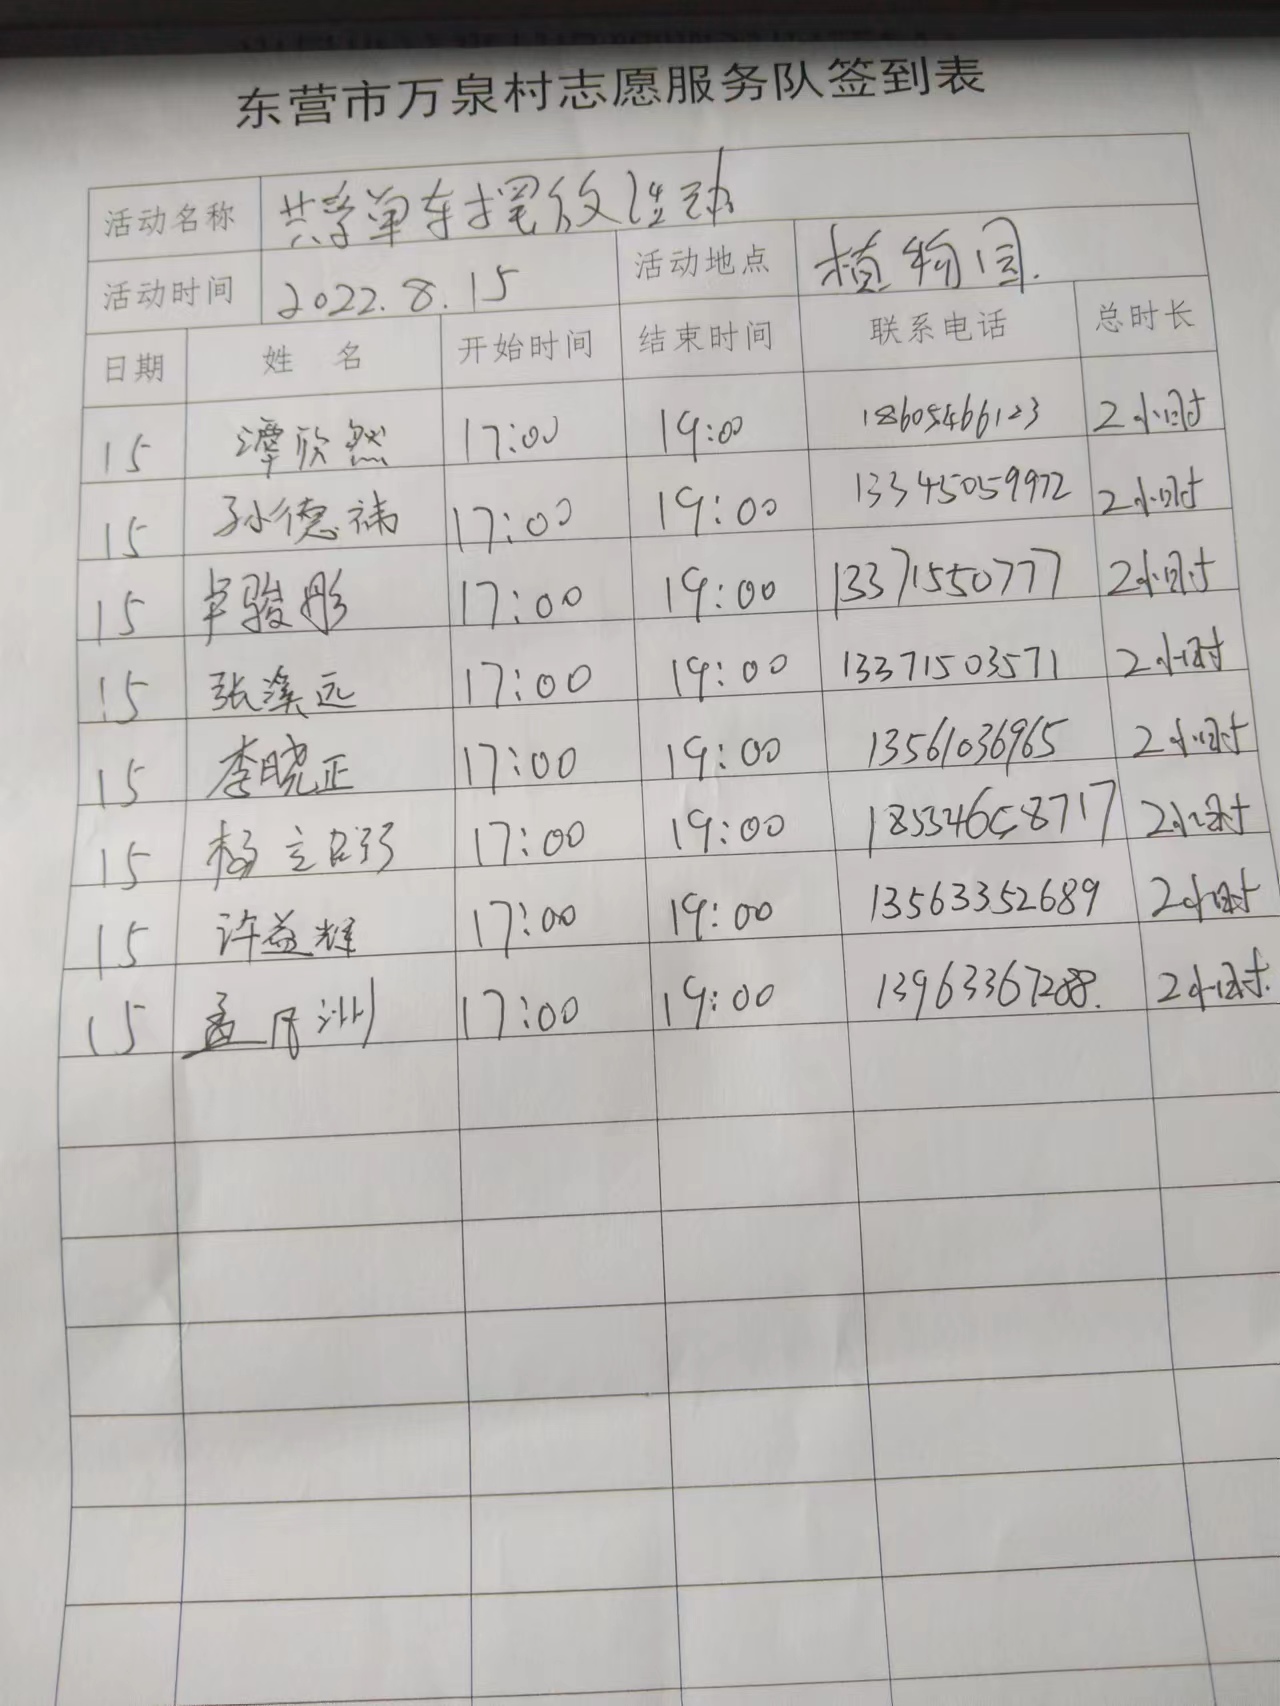 东营市万泉村志愿服务队签到表
活动名称 共享单车摆放活动
活动时间 2022.8.15 活动地点 植物园.
日期 姓名 开始时间 结束时间 联系电话 总时长
15 谭欣然 17:00 19:00 18605466123 2小时
15 孙德祎 17:00 19:00 13345059972 2小时
15 骏彤 17:00 19:00 13371550777 2小时
15 张溪远 17:00 19:00 13371503571 2小时
15 李晓正 17:00 19:00 13561036965 2小时
15 杨 17:00 19:00 2小时
15 许益辉 17:00 19:00 13563352689 2小时
15 孟 17:00 19:00 13963367288. 2小时.